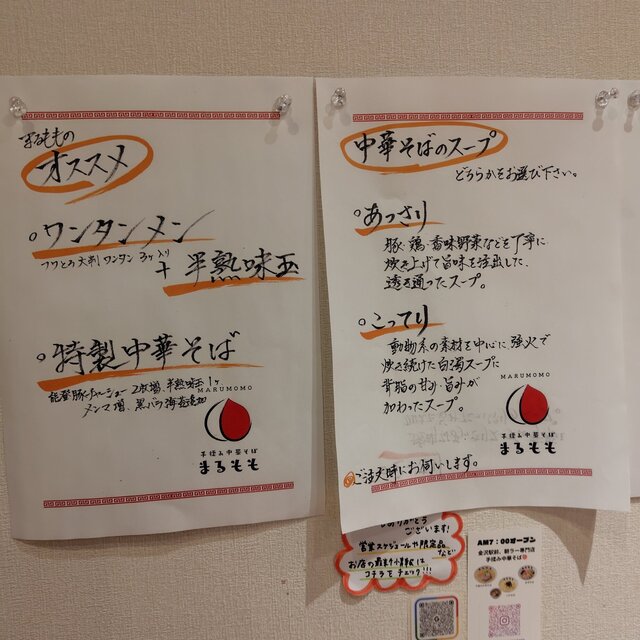 まるものの
オススメ
ワンタンメン
フワとろ大判ワンタン 3ヶ入り
+ 半熟味玉
特製中華そば
能登豚チャーシュー 2枚増、半熟味玉1ヶ
メンマ増、黒バラ海苔追加
MARUMOMO
手揉み中華そば
まるもも
中華そばのスープ
どちらかをお選び下さい。
あっさり
豚・鶏・香味野菜などを丁寧に
炊き上げて旨味を注出した、
透き通ったスープ。
こってり
動物系の素材を中心に強火で
炊き続けた白濁スープに
背脂の甘み・旨みが
加わったスープ。
MARUMOMO
手揉み中華そば
まるもも
ご注文時にお伺いします。
ありがとう
ございます!
営業スケジュールや限定品
など
お店の最新情報は
コチラをチェック!!!
AM7:00オープン
金沢駅前、朝ラー専門店
手揉み中華そば